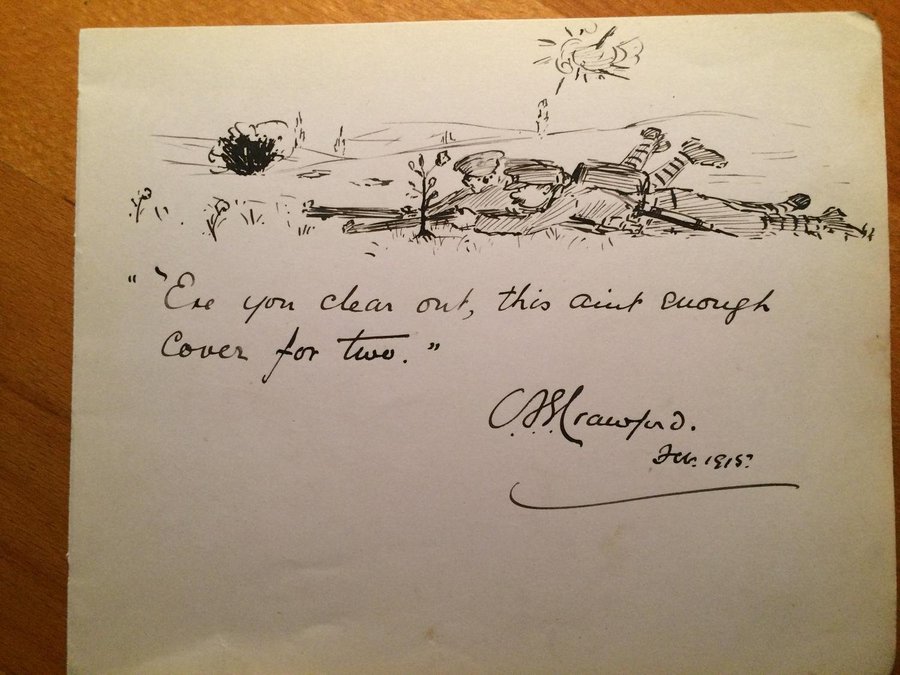 " 'Ere you clear out, this aint enough
Cover for two."
C.A.S. Crawford.
Feb. 1915.